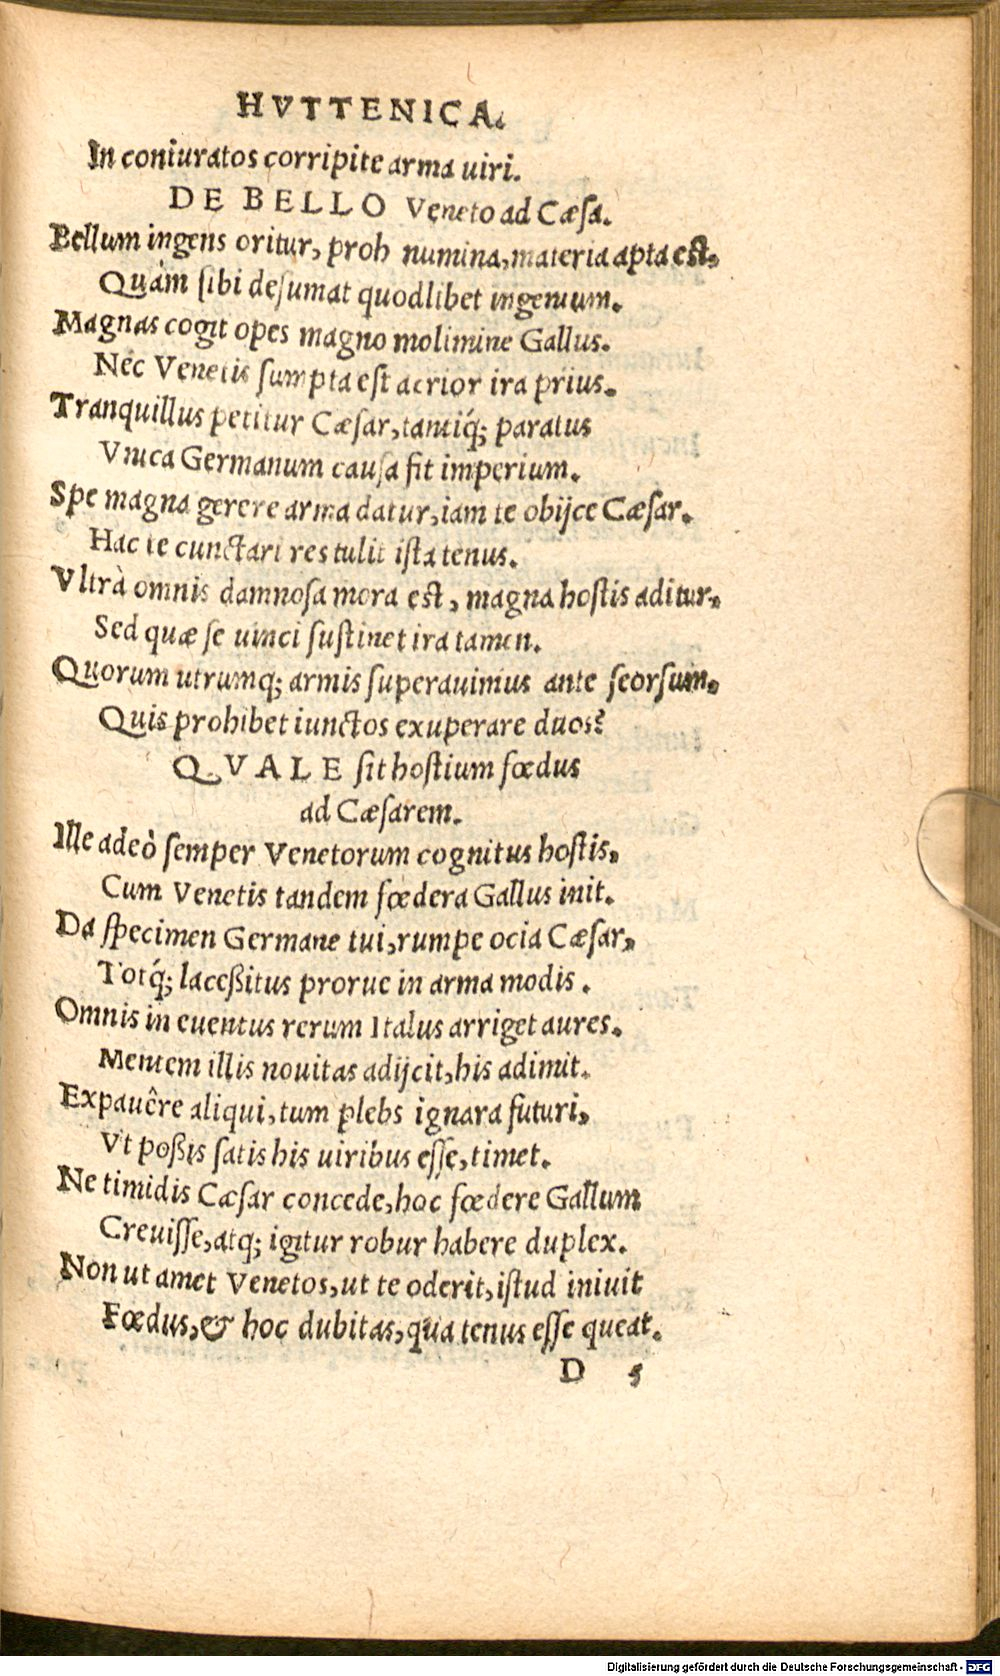 HVTTENICA.
In coniuratos corripite arma uiri.
DE BELLO Veneto ad Cæsa.
Bellum ingens oritur, proh numina, materia apta est,
Quàm sibi desumat quodlibet ingenium.
Magnas cogit opes magno molimine Gallus.
Nec Venetis sumpta est acrior ira prius.
Tranquillus petitur Cæsar, tantiq́; paratus
Vnica Germanum causa fit imperium.
Spe magna gerere arma datur, iam te obijce Cæsar.
Hac te cunctari res tulit ista tenus.
Vltrà omnis damnosa mora est, magna hostis aditur,
Sed quæ se uinci sustinet ira tamen.
Quorum utrumq; armis superauimus ante seorsum,
Quis prohibet iunctos exuperare duos?
QVALE sit hostium fœdus
ad Cæsarem.
Ille adeò semper Venetorum cognitus hostis,
Cum Venetis tandem fœdera Gallus init.
Da specimen Germane tui, rumpe ocia Cæsar,
Totq́; laceßitus prorue in arma modis.
Omnis in euentus rerum Italus arriget aures.
Mentem illis nouitas adijcit, his adimit.
Expauêre aliqui, tum plebs ignara futuri,
Vt poßis satis his uiribus esse, timet.
Ne timidis Cæsar concede, hoc fœdere Gallum
Creuisse, atq; igitur robur habere duplex.
Non ut amet Venetos, ut te oderit, istud iniuit
Fœdus, & hoc dubitas, qua tenus esse queat.
D 5
Digitalisierung gefördert durch die Deutsche Forschungsgemeinschaft - DFG